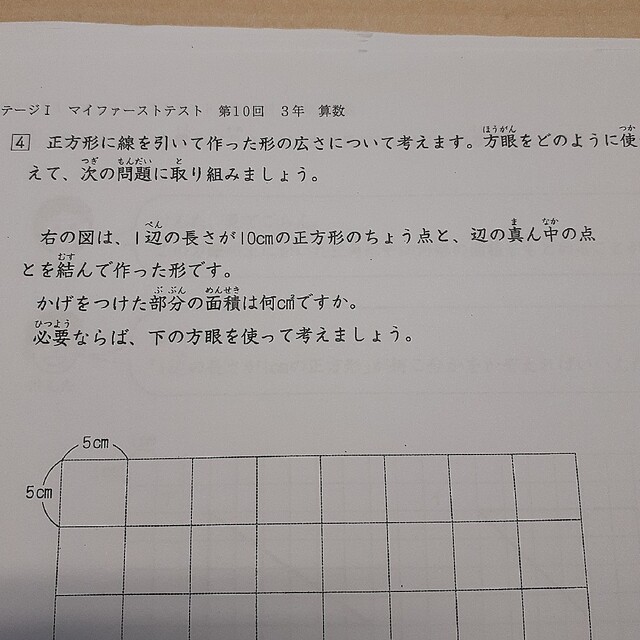 テージⅠ マイファーストテスト 第10回 3年 算数
4 正方形に線を引いて作った形の広さについて考えます。方眼をどのように使
えて、次の問題に取り組みましょう。
右の図は、1辺の長さが10cmの正方形のちょう点と、辺の真ん中の点
とを結んで作った形です。
かげをつけた部分の面積は何cm²ですか。
必要ならば、下の方眼を使って考えましょう。
5cm
5cm